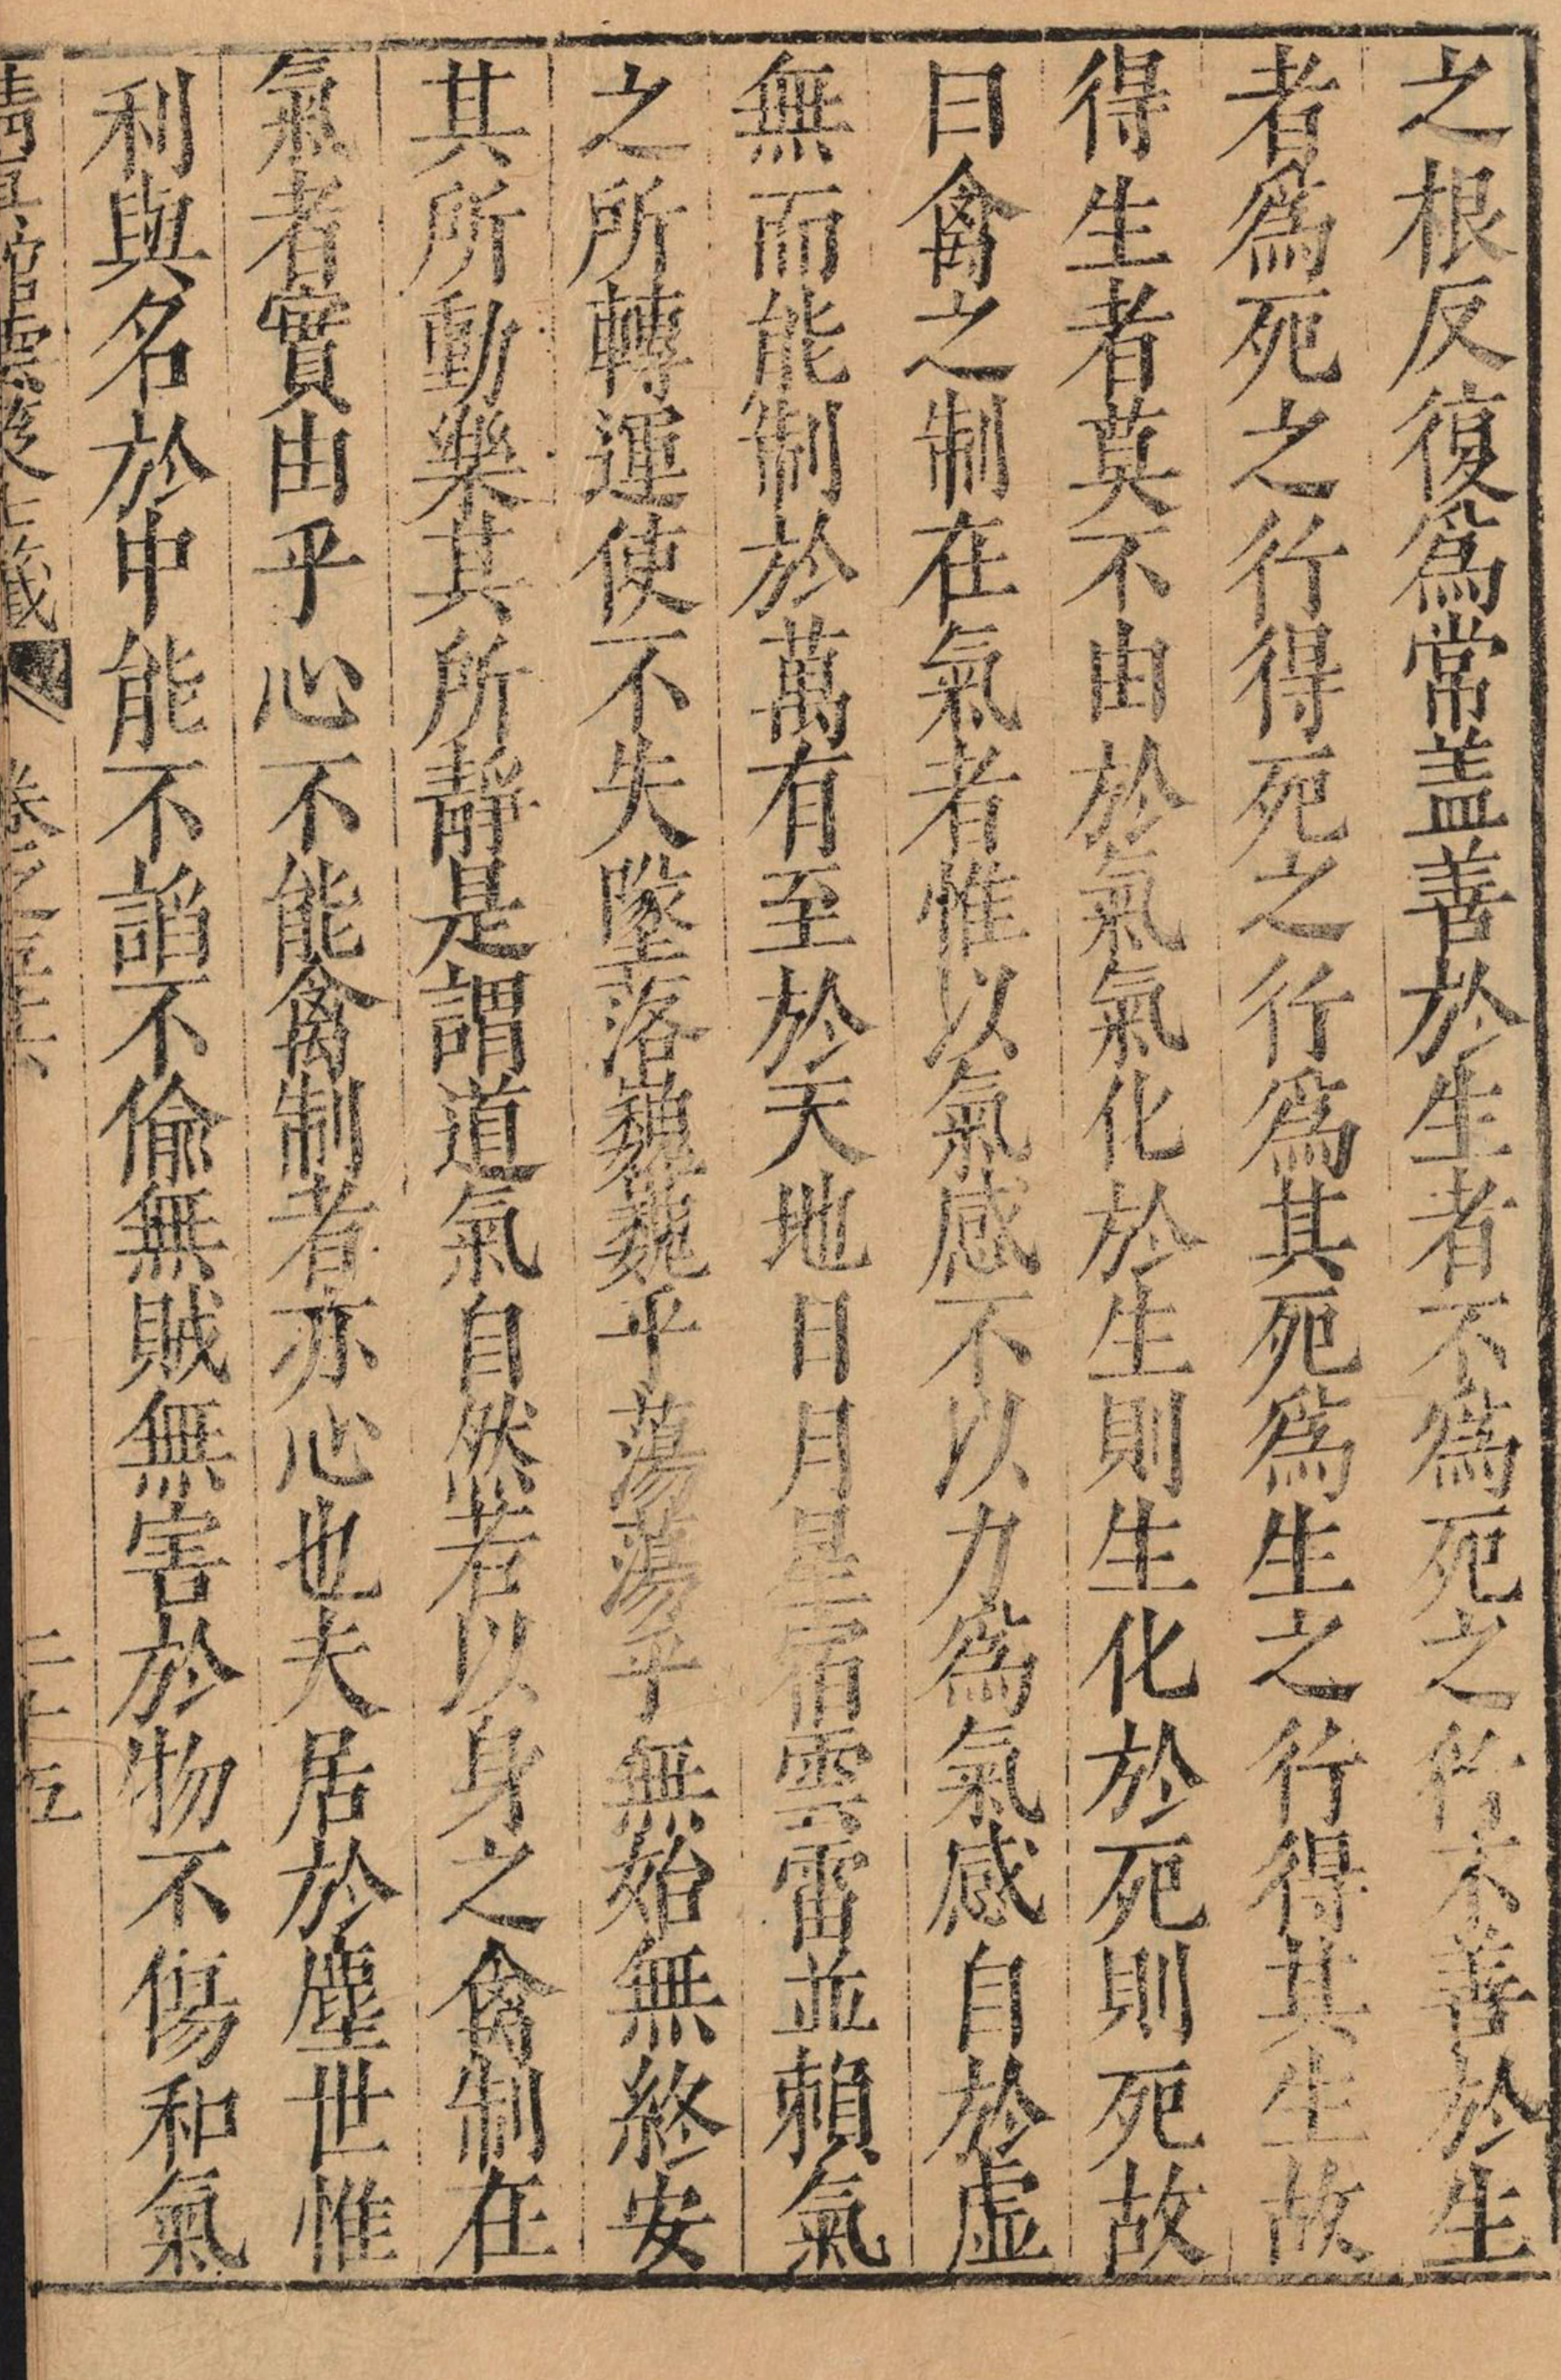 之根反復爲常盖善於生者不爲死之行不善於生
者爲死之行得死之行爲其死爲生之行得其生故
得生者莫不由於氣氣化於生則生化於死則死故
曰禽之制在氣者惟以氣感不以力爲氣感自於虛
無而能制於萬有至於天地日月星宿雲雷並賴氣
之所轉運使不失墜落巍巍乎蕩蕩乎無始無終安
其所動樂其所靜是謂道氣自然若以身之禽制在
氣者實由乎心不能禽制者亦心也夫居於塵世惟
利與名於中能不諂不偷無賊無害於物不傷和氣
卷之五十六 二十五